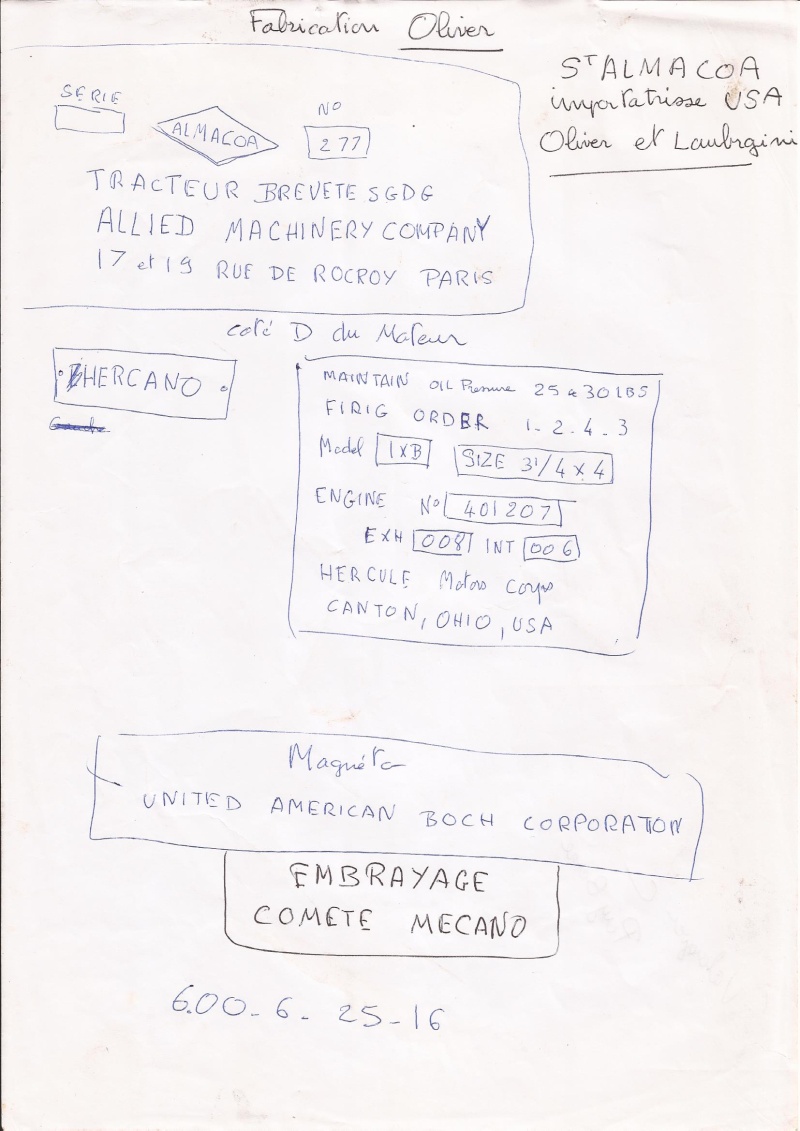 Fabrication Oliver
ST ALMACOA
importatrisse USA
Oliver et Laubrgini
SERIE
ALMACOA
No
277
TRACTEUR BREVETE SGDG
ALLIED MACHINERY COMPANY
17 et 19 RUE DE ROCROY PARIS
coté D du Moteur
HERCANO
MAINTAIN OIL Pressure 25 à 30 LBS
FIRIG ORDER 1-2.4.3
Model IXB SIZE 31/4 x 4
ENGINE No 401207
EXH 008 INT 006
HERCULE Motors Corps
CANTON, OHIO, USA
Magnéto
UNITED AMERICAN BOCH CORPORATION
EMBRAYAGE
COMETE MECANO
6.00-6.25-16